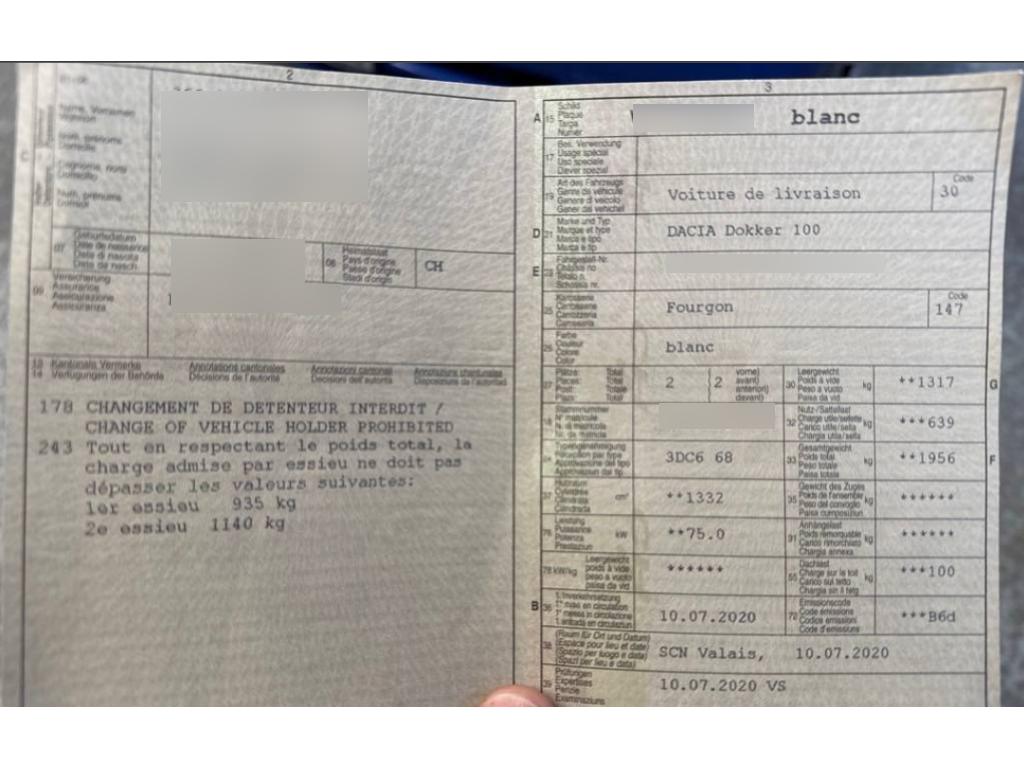 2
Name, Vornamen
Wohnort
Nom, prénoms
Domicile
Cognome, nomi
Domicilio
Num, prenums
Domicil
C
07
Geburtsdatum
Date de naissance
Data di nascita
Data da nasch.
08
Heimatstaat
Pays d'origine
Paese d'origine
Stadi d'origin
CH
09
Versicherung
Assurance
Assicurazione
Assicuranza
13 Kantonale Vermerke Annotations cantonales Annotazioni cantonali Annotaziuns chantunalas
14 Verfügungen der Behörde Décisions de l'autorité Decisioni dell'autorità Disposiziuns da l'autoritad
178 CHANGEMENT DE DETENTEUR INTERDIT /
CHANGE OF VEHICLE HOLDER PROHIBITED
243 Tout en respectant le poids total, la
charge admise par essieu ne doit pas
dépasser les valeurs suivantes:
1er essieu 935 kg
2e essieu 1140 kg
3
A 15
Schild
Plaque
Targa
Numer
blanc
17
Bes. Verwendung
Usage spécial
Uso speciale
Diever spezial
19
Art des Fahrzeugs
Genre de véhicule
Genere di veicolo
Gener dal vehichel
Voiture de livraison
Code
30
D 21
Marke und Typ
Marque et type
Marca e tipo
Marca e tip
DACIA Dokker 100
E 23
Fahrgestell-Nr.
Châssis no
Telaio n.
Schassis nr.
25
Karosserie
Carrosserie
Carrozzeria
Carossaria
Fourgon
Code
147
26
Farbe
Couleur
Colore
Color
blanc
27
Plätze Total
Places Total
Posti Totale
Plazs Total
2
2
vorne)
avant)
anteriori)
davant)
30
Leergewicht
Poids à vide
Peso a vuoto
Paisa da vid
kg
**1317
G
18
Stammnummer
N° matricule
N. di matricola
Nr. da matricla
32
Nutz-/Sattellast
Charge utile/sellette
Carico utile/sella
Chargia utila/sella
kg
***639
24
Typengenehmigung
Réception par type
Approvazione del tipo
Approvaziun dal tip
3DC6 68
33
Gesamtgewicht
Poids total
Peso totale
Paisa totala
kg
**1956
F
37
Hubraum
Cylindrée
Cilindrata
Cilindrada
cm³
**1332
35
Gewicht des Zuges
Poids de l'ensemble
Peso del convoglio
Paisa cumposiziun
kg
******
76
Leistung
Puissance
Potenza
Prestaziun
kW
**75.0
31
Anhängelast
Poids remorquable
Carico rimorchiato
Chargia annexa
kg
******
78 kW/kg
Leergewicht
poids à vide
peso a vuoto
paisa da vid
******
55
Dachlast
Charge sur le toit
Carico sul tetto
Chargia sin il tetg
kg
***100
B 36
1. Inverkehrsetzung
1re mise en circulation
1a messa in circolazione
1. entrada en circulaziun
10.07.2020
72
Emissionscode
Code émissions
Codice emissioni
Code d'emissiuns
***B6d
38
(Raum für Ort und Datum)
(Espace pour lieu et date)
(Spazio per luogo e data)
(Spazi per lieu e data)
SCN Valais, 10.07.2020
39
Prüfungen
Expertises
Perizie
Examinaziuns
10.07.2020 VS